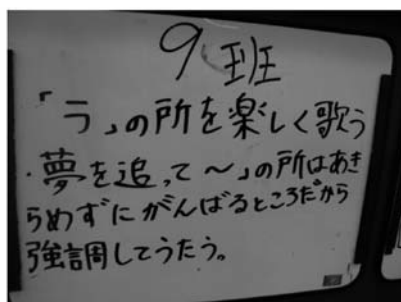 9班
「ラ」の所を楽しく歌う
・夢を追って〜」の所はあき
らめずにがんばるところだから
強調してうたう。